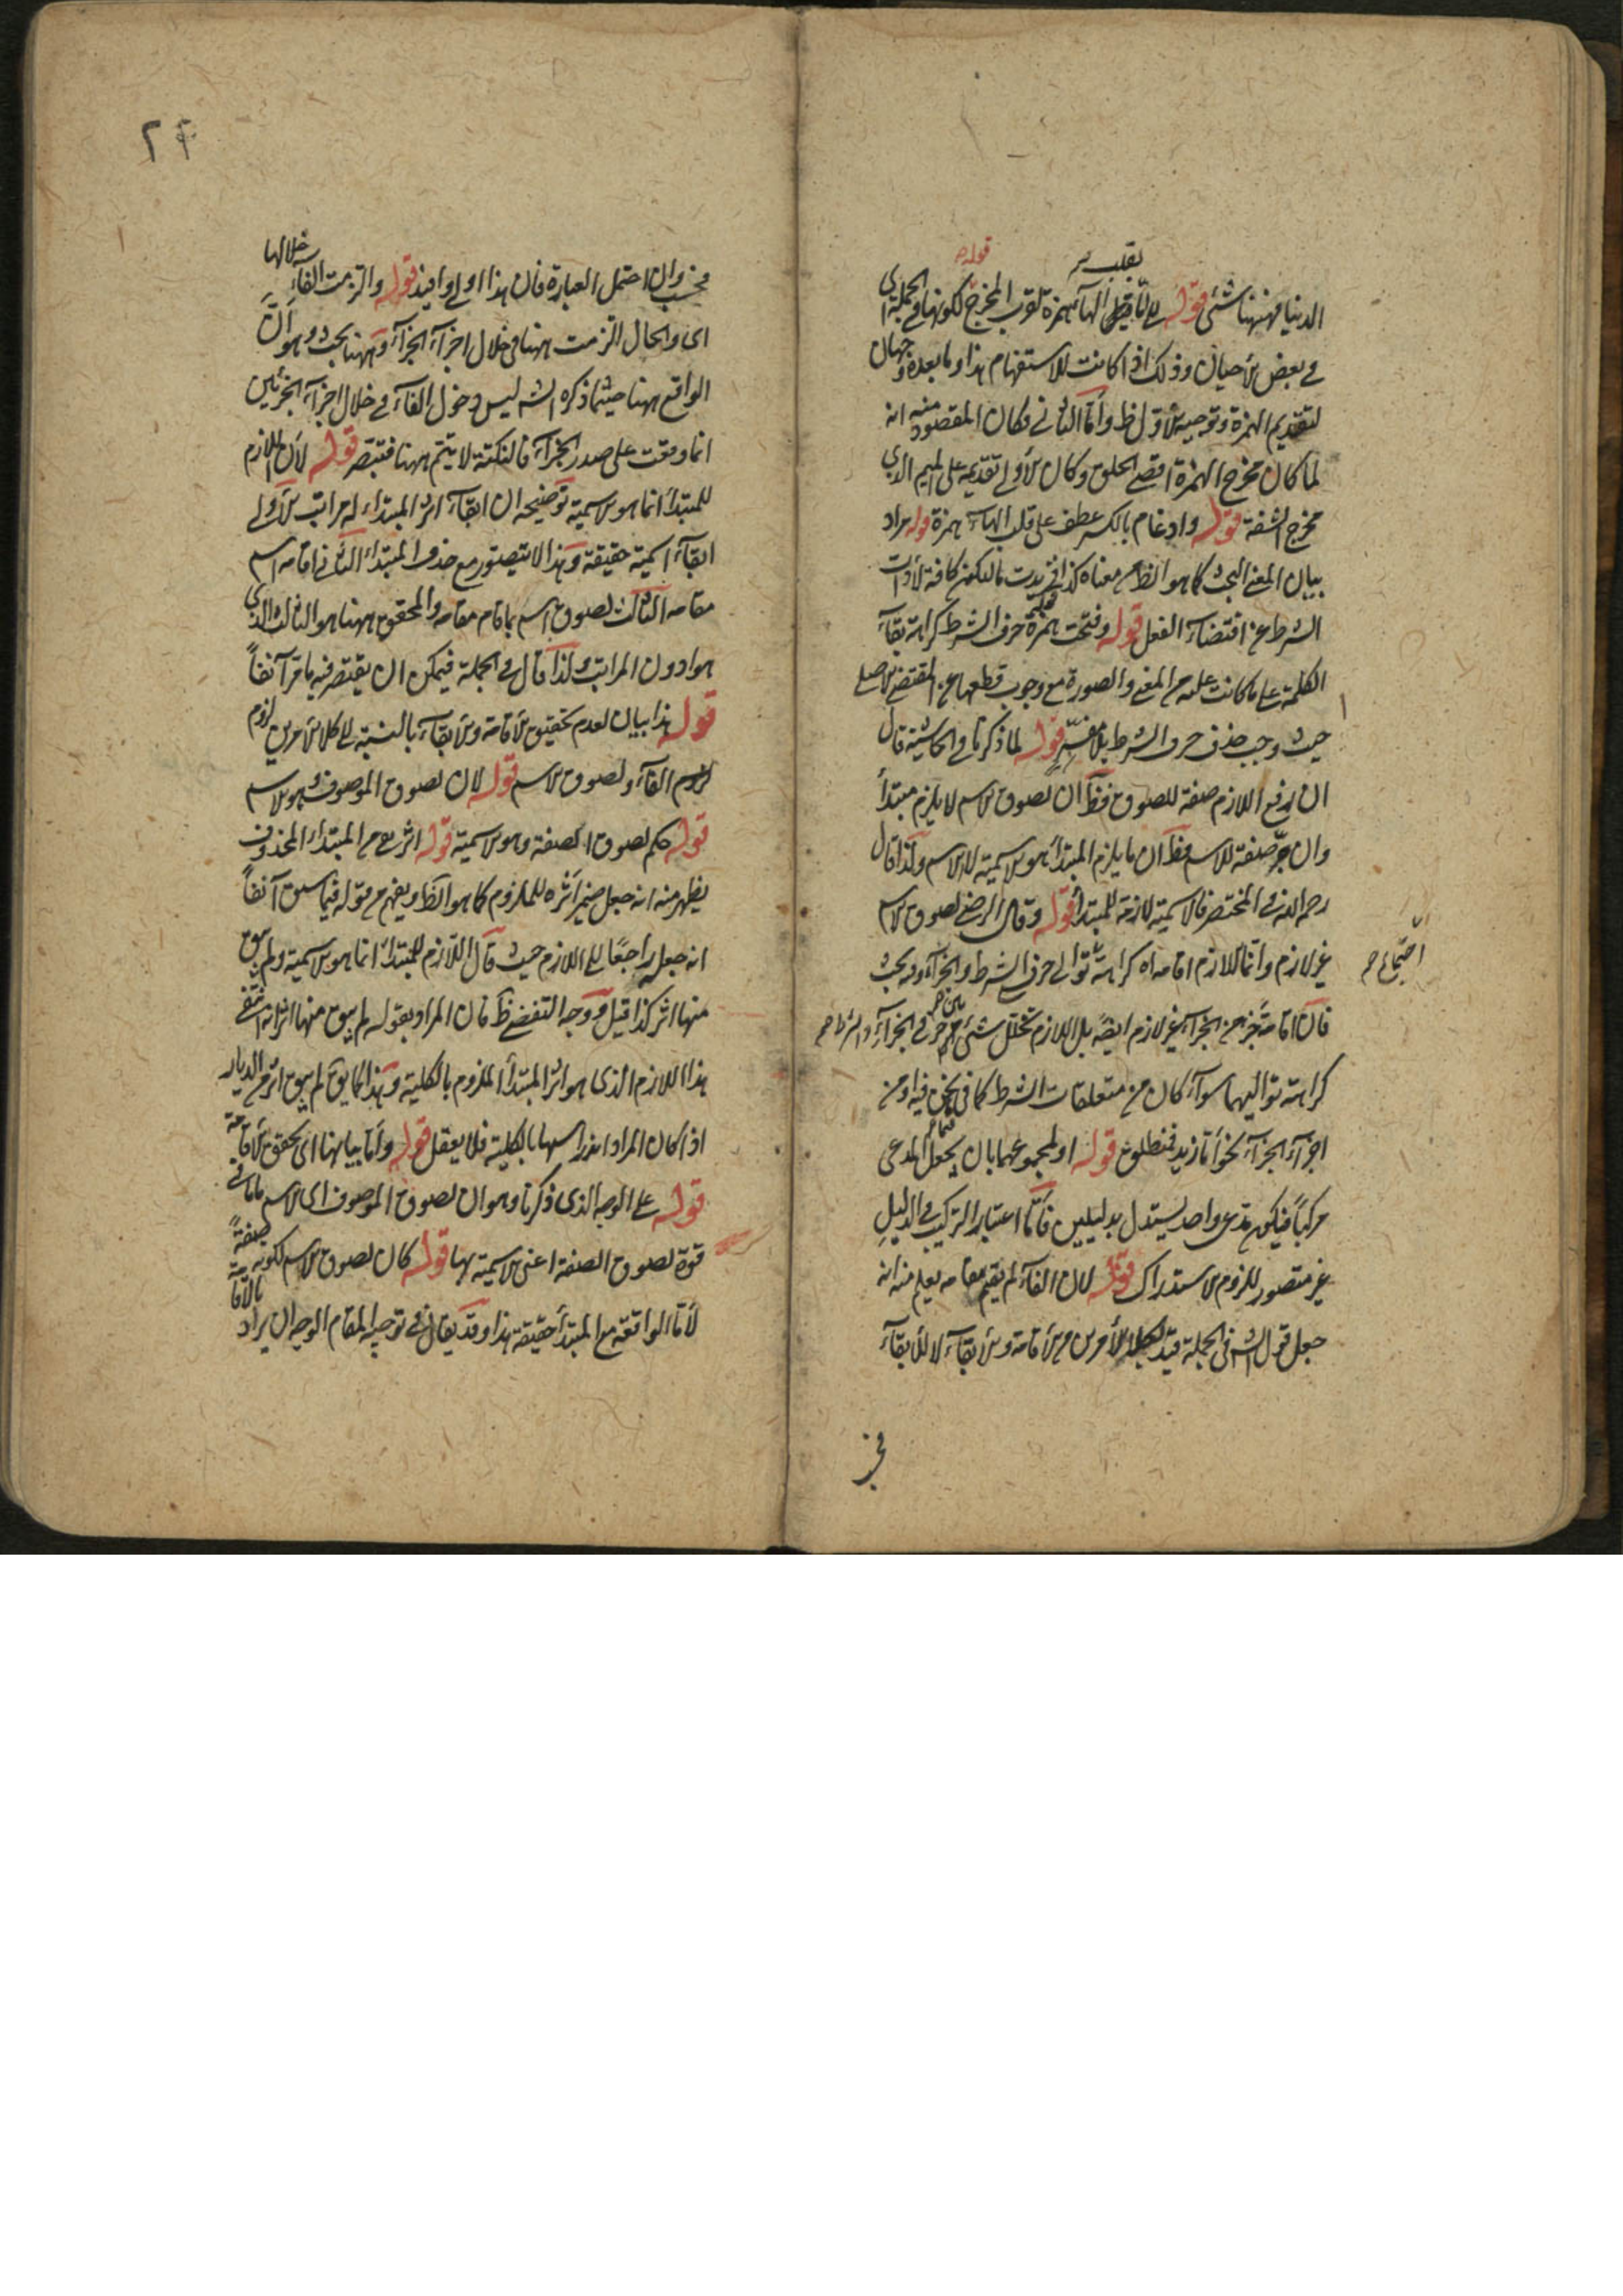 الدنيا فههنا شئ قوله الى بقلب الهاء همزة لقرب المخرج قوله لكونها في الجملة اى
في بعض الاحيان وذلك اذا كانت للاستفهام هذا وما بعده وجهان
لتقديم الهمزة وتوجيه الاول ظ واما الثاني فكان المقصود منه انه
لما كان مخرج الهمزة اقصى الحلق وكان الاولى تقديمه على الميم الذى
مخرج الشفة قوله وادغام بالكسر عطف على قلب الهاء همزة قوله مراد
بيان المعنى البحث كما هو الظاهر معناه كذا زيدت ما لتكون كافة لادات
الشرط عن اقتضاء الفعل قوله وفتحت همزة حرف الشرط كراهة بقاء
الكلمة على ما كانت عليه من المعنى والصورة مع وجوب قطعها عن المقتضى الاصلى
حيث وجب حذف حرف الشرط بلا مفسر قوله لما ذكرنا في الحاشية قال
ان رفع اللازم صفة للصوق فظ ان لصوق الاسم لا يلزم مبتدأ
وان جر صفة للاسم فظ ان ما يلزم المبتدأ هو الاسمية لا الاسم ولذا قال
رحمه الله في المختصر فالاسمية لازمة للمبتدأ قوله وقال الرضى لصوق الاسم
غير لازم وانما اللازم اقامه اه كراهة توالى حرفى الشرط والجزاء وفيه بحث
اجتماع صح
فان اقامة جزء من الجزاء غير لازم ايضا بل اللازم تخلل شئ بين حرفى الجزاء والشرط صح
كراهة تواليهما سواء كان من متعلقات الشرط كما في نحن فيه او من
اجزاء الجزاء نحو اما زيد فمنطلق قوله او لمجموعهما بان يجعل المدعى
مركبا فيكون مدعى واحد يستدل بدليلين فاما اعتبار التركيب في الدليل
غير متصور للزوم الاستدراك قوله لان الفاء لم يقم مقامه يعلم منه انه
جعل قول الش في الجملة قيد لكلا الامرين من الاقامة والابقاء لا للابقاء
فحسب وان احتمل العبارة فان هذا اولى وافيد قوله والتزمت الفاء خلالها
اى والحال التزمت ههنا في خلال اجزاء الجزاء وههنا بحث وهو ان
الواقع ههنا حيثما ذكره الش ليس دخول الفاء في خلال اجزاء الجزئين
انما وقعت على صدر الجزاء فالنكتة لا يتم ههنا فتبصر قوله لان اللازم
للمبتدأ انما هو الاسمية توضيحه ان ابقاء اثر المبتداء له مراتب الاولى
ابقاء اسمية حقيقة وهذا لا يتصور مع حذف المبتداء الثانى اقامة اسم
مقامه الثالث لصوق اسم بما قام مقامه والمحقق ههنا هو الثالث الذى
هو ادون المراتب ولذا قال في الجملة فيمكن ان يقتصر فيه ما مر آنفاً
قوله هذا بيان لعدم تحقيق الاقامة والابقاء بالنسبة الى كلا الامرين لزوم
لزوم الفاء ولصوق الاسم قوله لان لصوق الموصوف وهو الاسم
قوله حكم لصوق الصفة وهو الاسمية قوله اثر من المبتداء المحذوف
يظهر منه انه جعل ضمير اثره للملزوم كما هو الظ ويفهم من قوله فيما سبق آنفاً
انه جعل راجعاً الى اللازم حيث قال اللازم للمبتدأ انما هو الاسمية ولم يبق
منها اثر كذا قيل ووجه التفصى ظ فان المراد بقوله لم يبق منها اثر انتفى
هذا اللازم الذى هو اثر المبتدأ الملزوم بالكلية وهذا كما يق لم يبق اثر من الديار
اذا كان المراد اندراسها بالكلية فلا يعقل قوله واما بيانها اى تحقق الاقامة
قوله على الوجه الذى ذكرنا وهو ان لصوق الموصوف اى الاسم باما في
قوة لصوق الصفة اعنى الاسمية بها قوله كان لصوق الاسم لكونه صفة
لاما الواقعة مع المبتدأ حقيقة هذا وقد يقال في توجيه المقام الوجه ان يراد بالاقامة